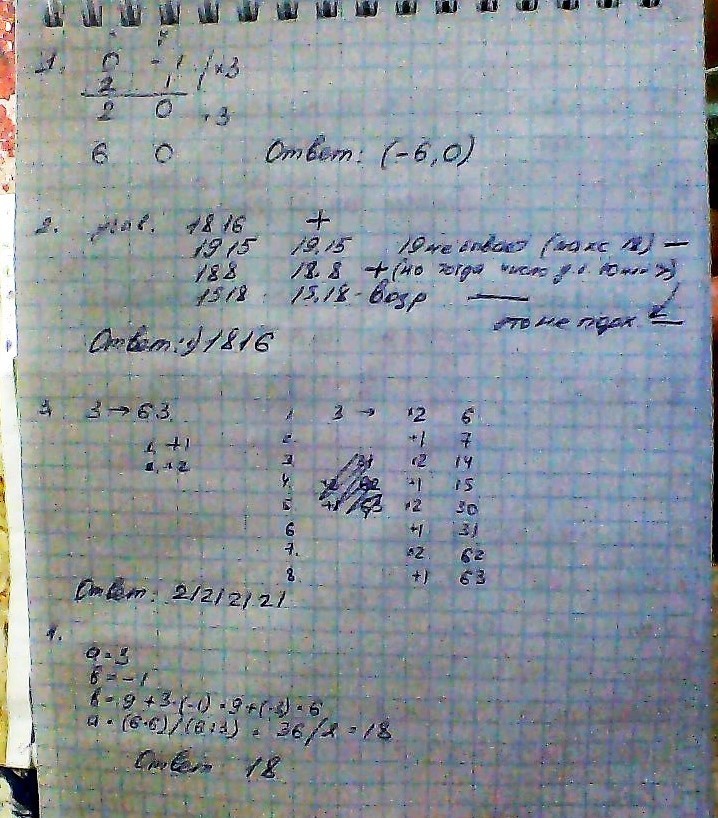 1. 0 -1 | ×3
2 1
2 0 · 3
6 0 Ответ: (-6,0)
2. 1816 +
1915 19.15 19 не бывает (макс 18) —
188 18.8 + (но тогда число
1518 15.18 - возр —
это не подх. —
Ответ: 1816
3. 3 → 63 1 3 → ·2 6
1. +1 2 +1 7
2. ·2 3 ·2 14
4. +1 15
5 ·2 30
6 +1 31
7. ·2 62
8 +1 63
Ответ: 21212121
a = 3
b = -1
b = 9 + 3·(-1) = 9 + (-3) = 6
a = (6·6)/(6:3) = 36/2 = 18
Ответ 18